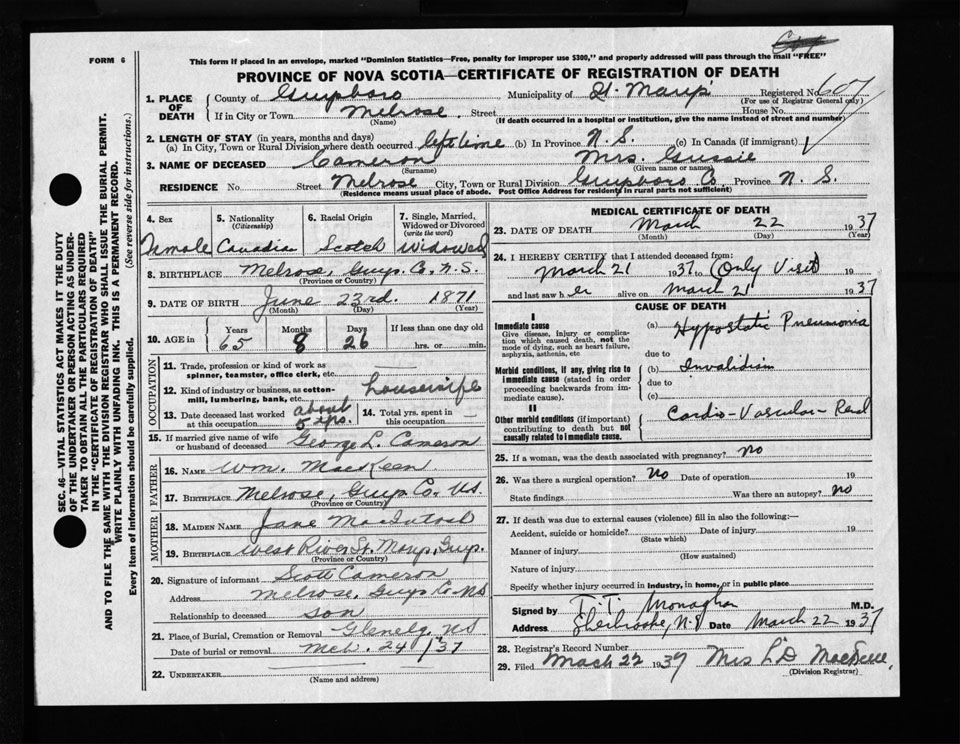 FORM 6
This form if placed in an envelope, marked "Dominion Statistics—Free, penalty for improper use $300," and properly addressed will pass through the mail "FREE"
PROVINCE OF NOVA SCOTIA—CERTIFICATE OF REGISTRATION OF DEATH
1. PLACE OF DEATH
County of Guysboro Municipality of St. Marys Registered No. 607
(For use of Registrar General only)
If in City or Town Melrose. Street House No.
(Name) (If death occurred in a hospital or institution, give the name instead of street and number)
2. LENGTH OF STAY (in years, months and days)
(a) In City, Town or Rural Division where death occurred lifetime (b) In Province N. S. (c) In Canada (if immigrant)
3. NAME OF DECEASED Cameron Mrs. Gussie
(Surname) (Given name or names)
RESIDENCE No. Street Melrose City, Town or Rural Division Guysboro Co Province N. S.
(Residence means usual place of abode. Post Office Address for residents in rural parts not sufficient)
4. Sex
5. Nationality (Citizenship)
6. Racial Origin
7. Single, Married, Widowed or Divorced (write the word)
Female Canadian Scotch Widowed
8. BIRTHPLACE Melrose, Guys. Co. N. S.
(Province or Country)
9. DATE OF BIRTH June 23rd. 1871
(Month) (Day) (Year)
10. AGE in
Years Months Days If less than one day old
65 8 26 hrs. or min.
OCCUPATION
11. Trade, profession or kind of work as spinner, teamster, office clerk, etc.
12. Kind of industry or business, as cotton-mill, lumbering, bank, etc. housewife
13. Date deceased last worked at this occupation about 5 yrs.
14. Total yrs. spent in this occupation —
15. If married give name of wife or husband of deceased George L. Cameron
FATHER
16. NAME Wm. MacKeen
17. BIRTHPLACE Melrose, Guys Co. NS.
(Province or Country)
MOTHER
18. MAIDEN NAME Jane MacIntosh
19. BIRTHPLACE West River St. Marys, Guys.
(Province or Country)
20. Signature of informant Scott Cameron
Address Melrose, Guys Co NS
Relationship to deceased son
21. Place of Burial, Cremation or Removal Glenelg. NS
Date of burial or removal Mch. 24/37
22. UNDERTAKER
(Name and address)
MEDICAL CERTIFICATE OF DEATH
23. DATE OF DEATH March 22 1937
(Month) (Day) (Year)
24. I HEREBY CERTIFY that I attended deceased from:
March 21 1937 to (Only Visit) 19
and last saw her alive on March 21 1937
CAUSE OF DEATH
I
Immediate cause
Give disease, injury or complication which caused death, not the mode of dying, such as heart failure, asphyxia, asthenia, etc
(a) Hypostatic Pneumonia
due to
Morbid conditions, if any, giving rise to immediate cause (stated in order proceeding backwards from immediate cause).
(b) Invalidism
due to
(c)
II
Other morbid conditions (if important) contributing to death but not causally related to immediate cause.
Cardio-Vascular-Renal
25. If a woman, was the death associated with pregnancy? no
26. Was there a surgical operation? No Date of operation 19
State findings Was there an autopsy? No
27. If death was due to external causes (violence) fill in also the following:—
Accident, suicide or homicide? Date of injury 19
(State which)
Manner of injury
(How sustained)
Nature of injury
Specify whether injury occurred in industry, in home, or in public place
Signed by T. T. Monaghan M.D.
Address Sherbrooke, N.S Date March 22 1937
28. Registrar's Record Number
29. Filed March 22 1937 Mrs
(Division Registrar)
SEC. 46—VITAL STATISTICS ACT MAKES IT THE DUTY
OF THE UNDERTAKER OR PERSON ACTING AS UNDER-
TAKER TO OBTAIN ALL THE PARTICULARS REQUIRED
IN THE "CERTIFICATE OF REGISTRATION OF DEATH"
AND TO FILE THE SAME WITH THE DIVISION REGISTRAR WHO SHALL ISSUE THE BURIAL PERMIT.
WRITE PLAINLY WITH UNFADING INK. THIS IS A PERMANENT RECORD.
Every item of information should be carefully supplied. (See reverse side for instructions.)